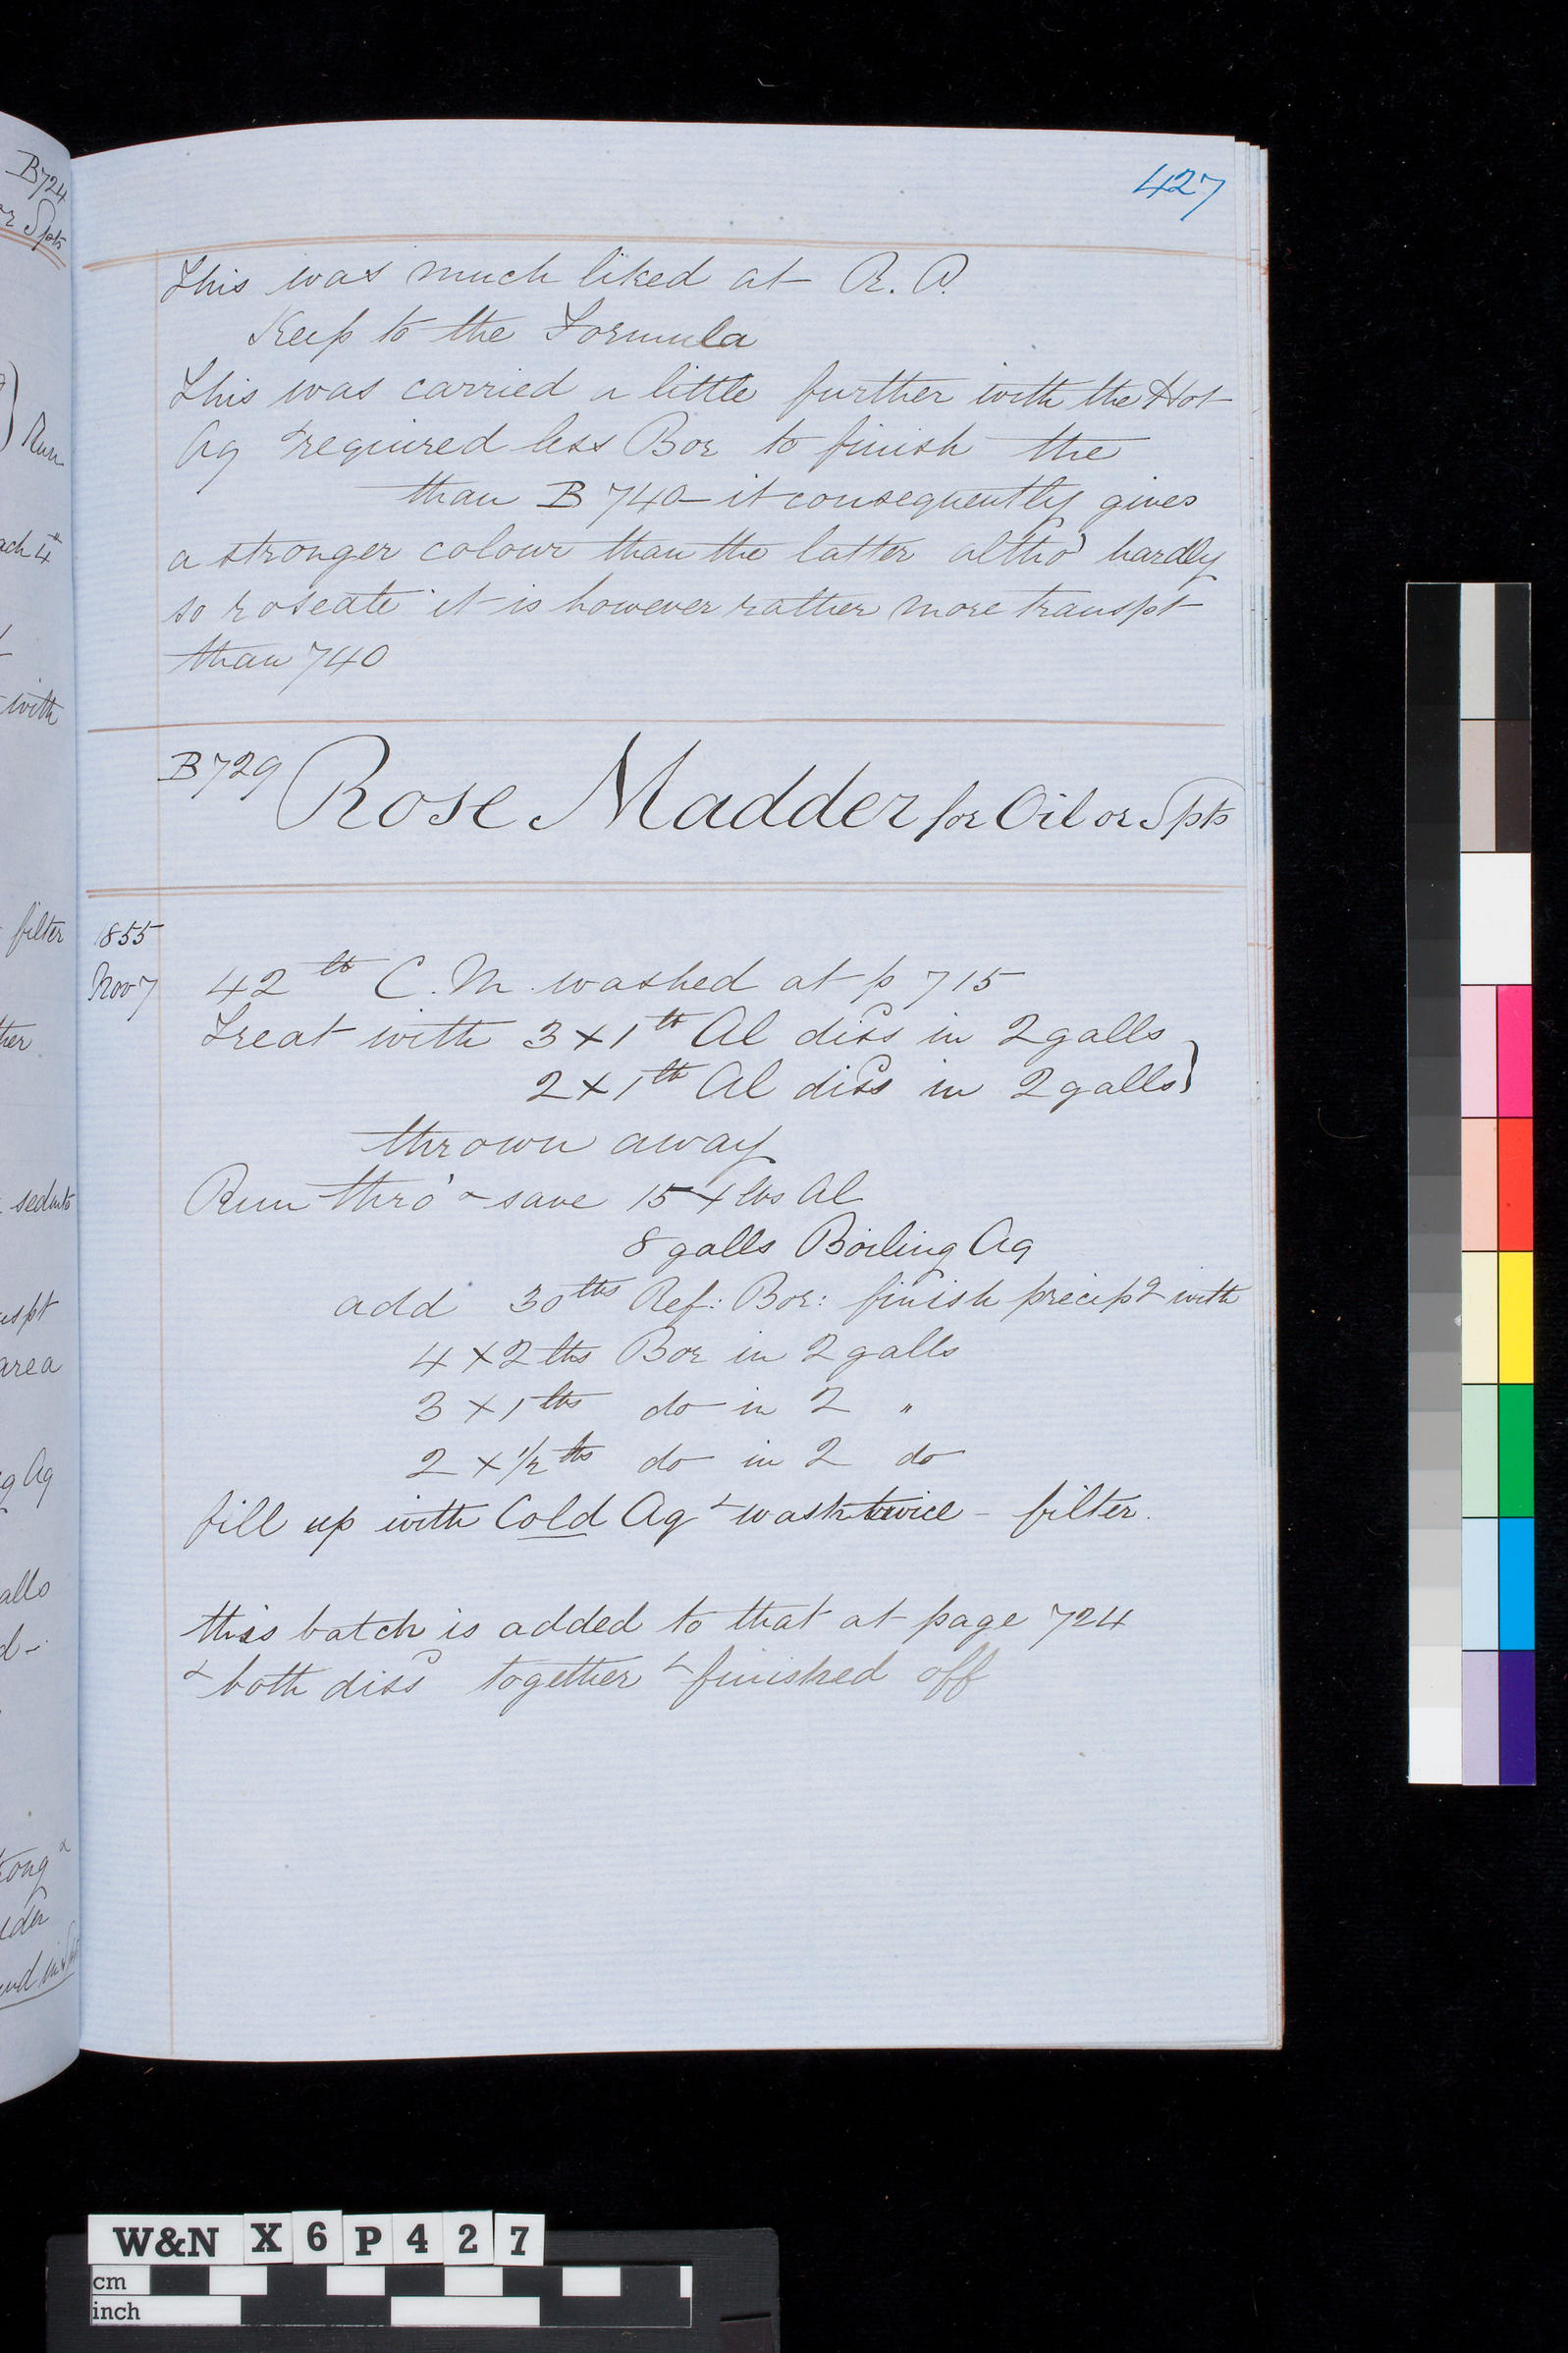 427
B724
or Spts
This was much liked at R. P.
Keep to the Formula
This was carried a little further with the Hot
Aq & required less Bor to finish the
than B 740 - it consequently gives
a stronger colour than the latter altho' hardly
so roseate it is however rather more transpt
than 740
B729 Rose Madder for Oil or Spts
1855
Nov 7 42 lb C. M. washed at p 715
Treat with 3 x 1 lb Al diss in 2 galls
2 x 1 lb Al diss in 2 galls }
thrown away
Run thro' & save 15 x lbs Al
8 galls Boiling Aq
add 30 lbs Ref: Bor: finish precipg with
4 x 2 lbs Bor in 2 galls
3 x 1 lbs do in 2 "
2 x 1/2 lbs do in 2 do
fill up with Cold Aq & wash twice - filter.
this batch is added to that at page 724
& both diss together & finished off
Run
with
filter
sedmts
area
W&N X 6 P 4 2 7
cm
inch